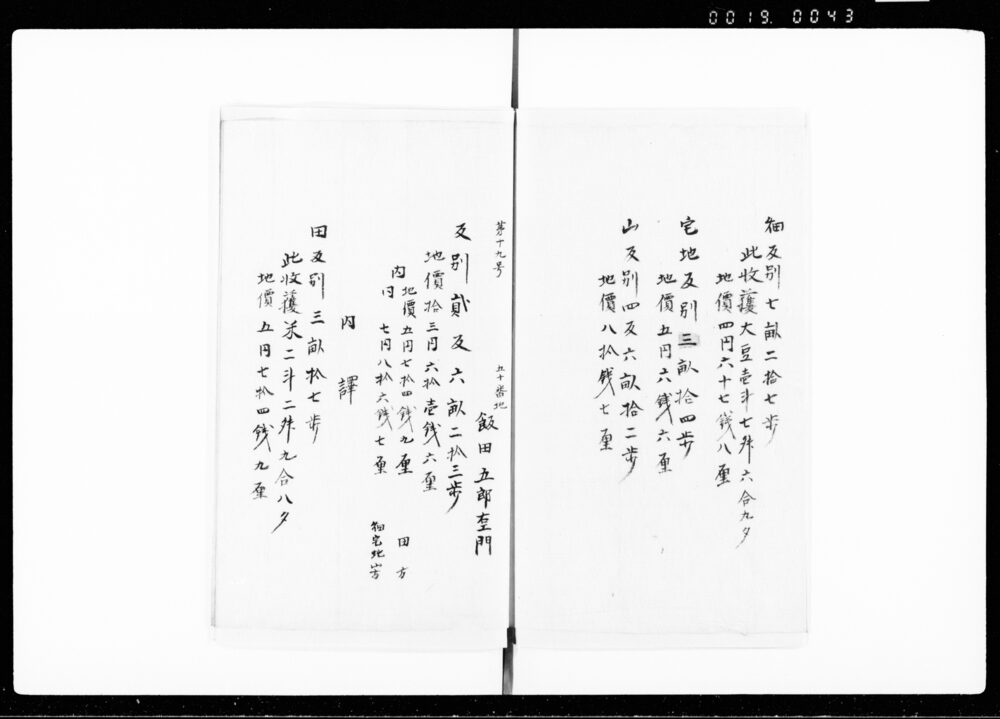 0019. 0043
畑反別七畝二拾七歩
此收獲大豆壱斗七舛六合九夕
地價四円六十七銭八厘
宅地反別三畝拾四歩
地價五円六銭六厘
山反別四反六畝拾二歩
地價八拾銭七厘
第十九号
五十番地
飯田五郎左エ門
反別貳反六畝二拾三歩
地價拾三円六拾壱銭六厘
内 地價五円七拾四銭九厘 田方
内 〃 七円八拾六銭七厘 畑宅地山方
内譯
田反別三畝拾七歩
此收獲米二斗二舛九合八夕
地價五円七拾四銭九厘